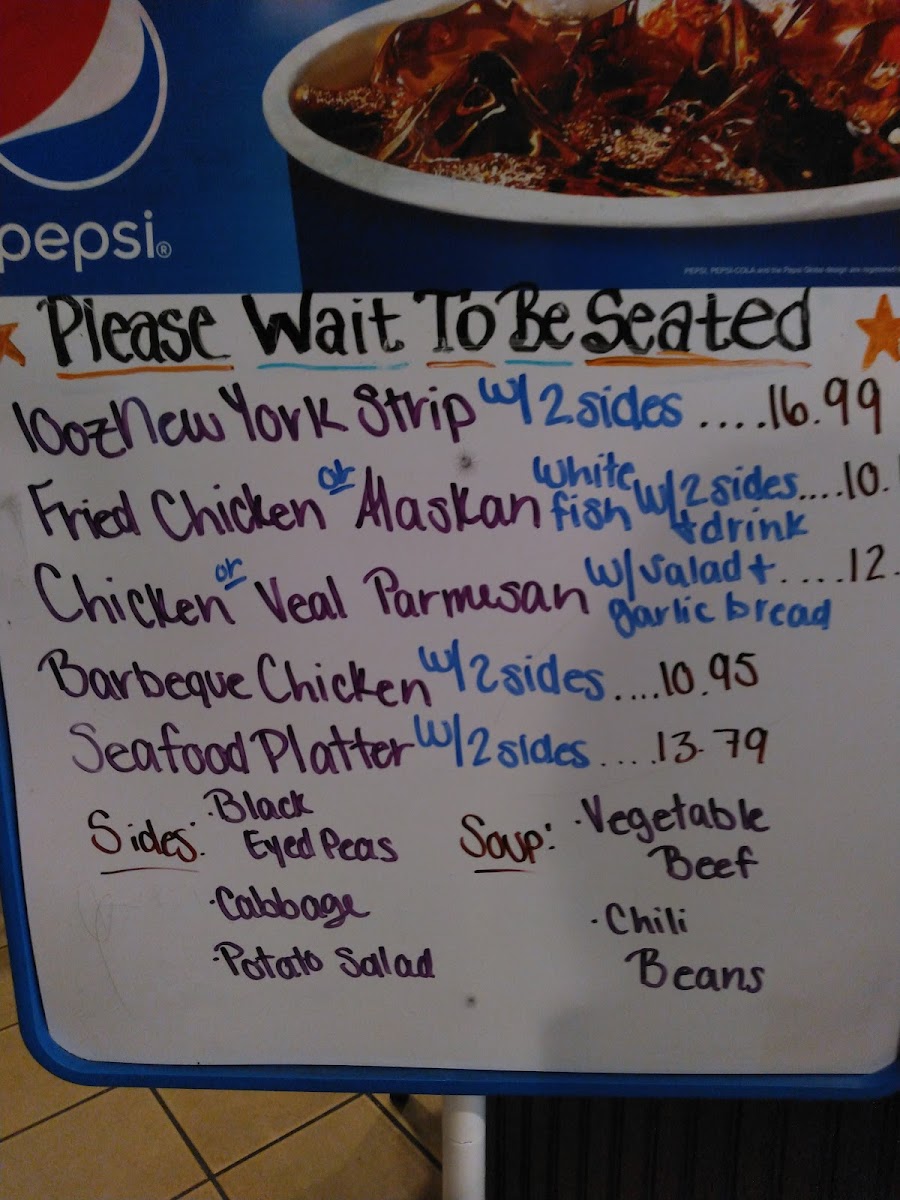 pepsi®
PEPSI, PEPSI-COLA and the Pepsi Globe design are registered
Please Wait To Be Seated
10oz New York Strip w/ 2 sides ....16.99
Fried Chicken or Alaskan white fish w/ 2 sides + drink ....10.
Chicken or Veal Parmesan w/ salad + garlic bread ....12.
Barbeque Chicken w/ 2 sides ....10.95
Seafood Platter w/ 2 sides ....13.79
Sides: ·Black Eyed Peas
·Cabbage
·Potato Salad
Soup: ·Vegetable Beef
·Chili Beans